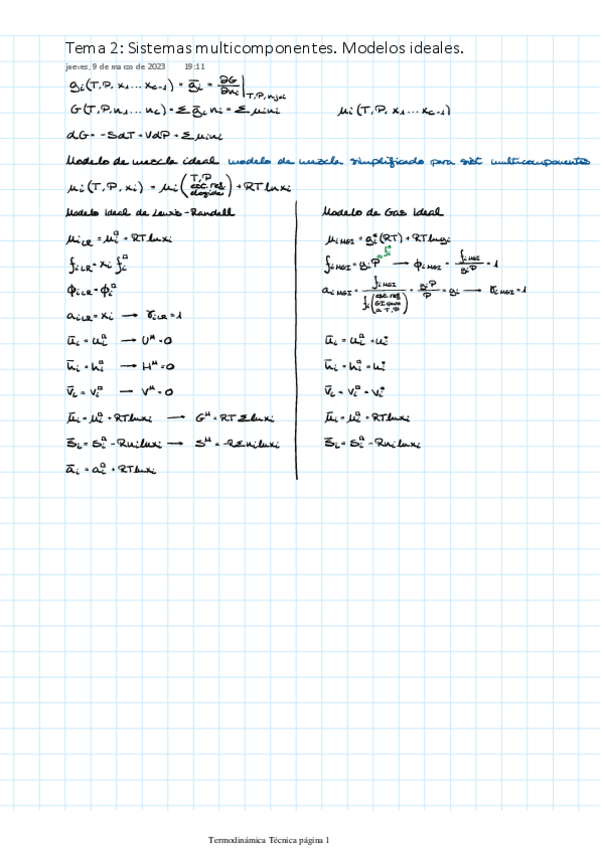 Tema 2: Sistemas multicomponentes. Modelos ideales.
jueves, 9 de marzo de 2023 19:11
gᵢ(T,P, x₁...x_c-1) = ḡᵢ = ∂G/∂nᵢ |T,P,nj≠i
G(T,P,n₁...n_c) = Σḡᵢnᵢ = Σμᵢnᵢ μᵢ(T,P, x₁...x_c-1)
dG = -SdT + VdP + Σμᵢnᵢ
Modelo de mezcla ideal modelo de mezcla simplificado para sist multicomponentes
μᵢ(T,P,xᵢ) = μᵢ(T,P esc. ref. elegido) + RTlnxᵢ
Modelo ideal de Lewis-Randall
μᵢLR = μᵢᵃ + RTlnxᵢ
fᵢLR = xᵢ fᵢᵃ
ϕᵢLR = ϕᵢᵃ
aᵢLR = xᵢ → γᵢLR = 1
ūᵢ = uᵢᵃ → Uᴹ = 0
h̄ᵢ = hᵢᵃ → Hᴹ = 0
v̄ᵢ = vᵢᵃ → Vᴹ = 0
μ̄ᵢ = μᵢᵃ + RTlnxᵢ → Gᴹ = RTΣlnxᵢ
s̄ᵢ = sᵢᵃ - Rnᵢlnxᵢ → Sᴹ = -RΣnᵢlnxᵢ
āᵢ = aᵢᵃ + RTlnxᵢ
Modelo de Gas ideal
μᵢMGI = gᵢ*(RT) + RTlnyᵢ
fᵢMGI = yᵢP → ϕᵢMGI = fᵢMGI/yᵢP = 1
aᵢMGI = fᵢMGI/fᵢ(esc. ref. GI puro a T,P) = yᵢP/P = yᵢ → γᵢMGI = 1
ūᵢ = uᵢᵃ = uᵢ*
h̄ᵢ = hᵢᵃ = hᵢ*
v̄ᵢ = vᵢᵃ = vᵢ*
μ̄ᵢ = μᵢᵃ + RTlnxᵢ
s̄ᵢ = sᵢᵃ - Rnᵢlnxᵢ
Termodinámica Técnica página 1